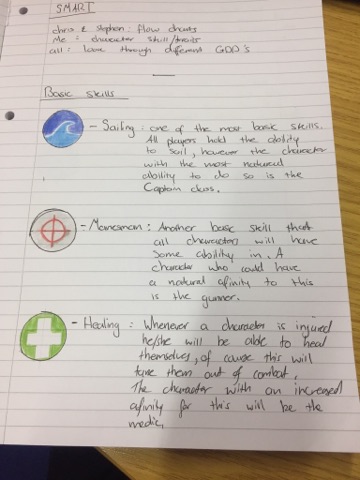 SMART
chris & stephen : flow charts
me : character skill/traits
all : look through different GDD's
Basic skills
- Sailing : one of the most basic skills.
All players hold the ability
to sail, however the character
with the most natural
ability to do so is the
Captain class.
- Marksman : Another basic skill that
all characters will have
some ability in. A
character who could have
a natural afinity to this
is the gunner.
- Healing : Whenever a character is injured
he/she will be able to heal
themselves, of cause this will
take them out of combat.
The character with an increased
afinity for this will be the
medic.